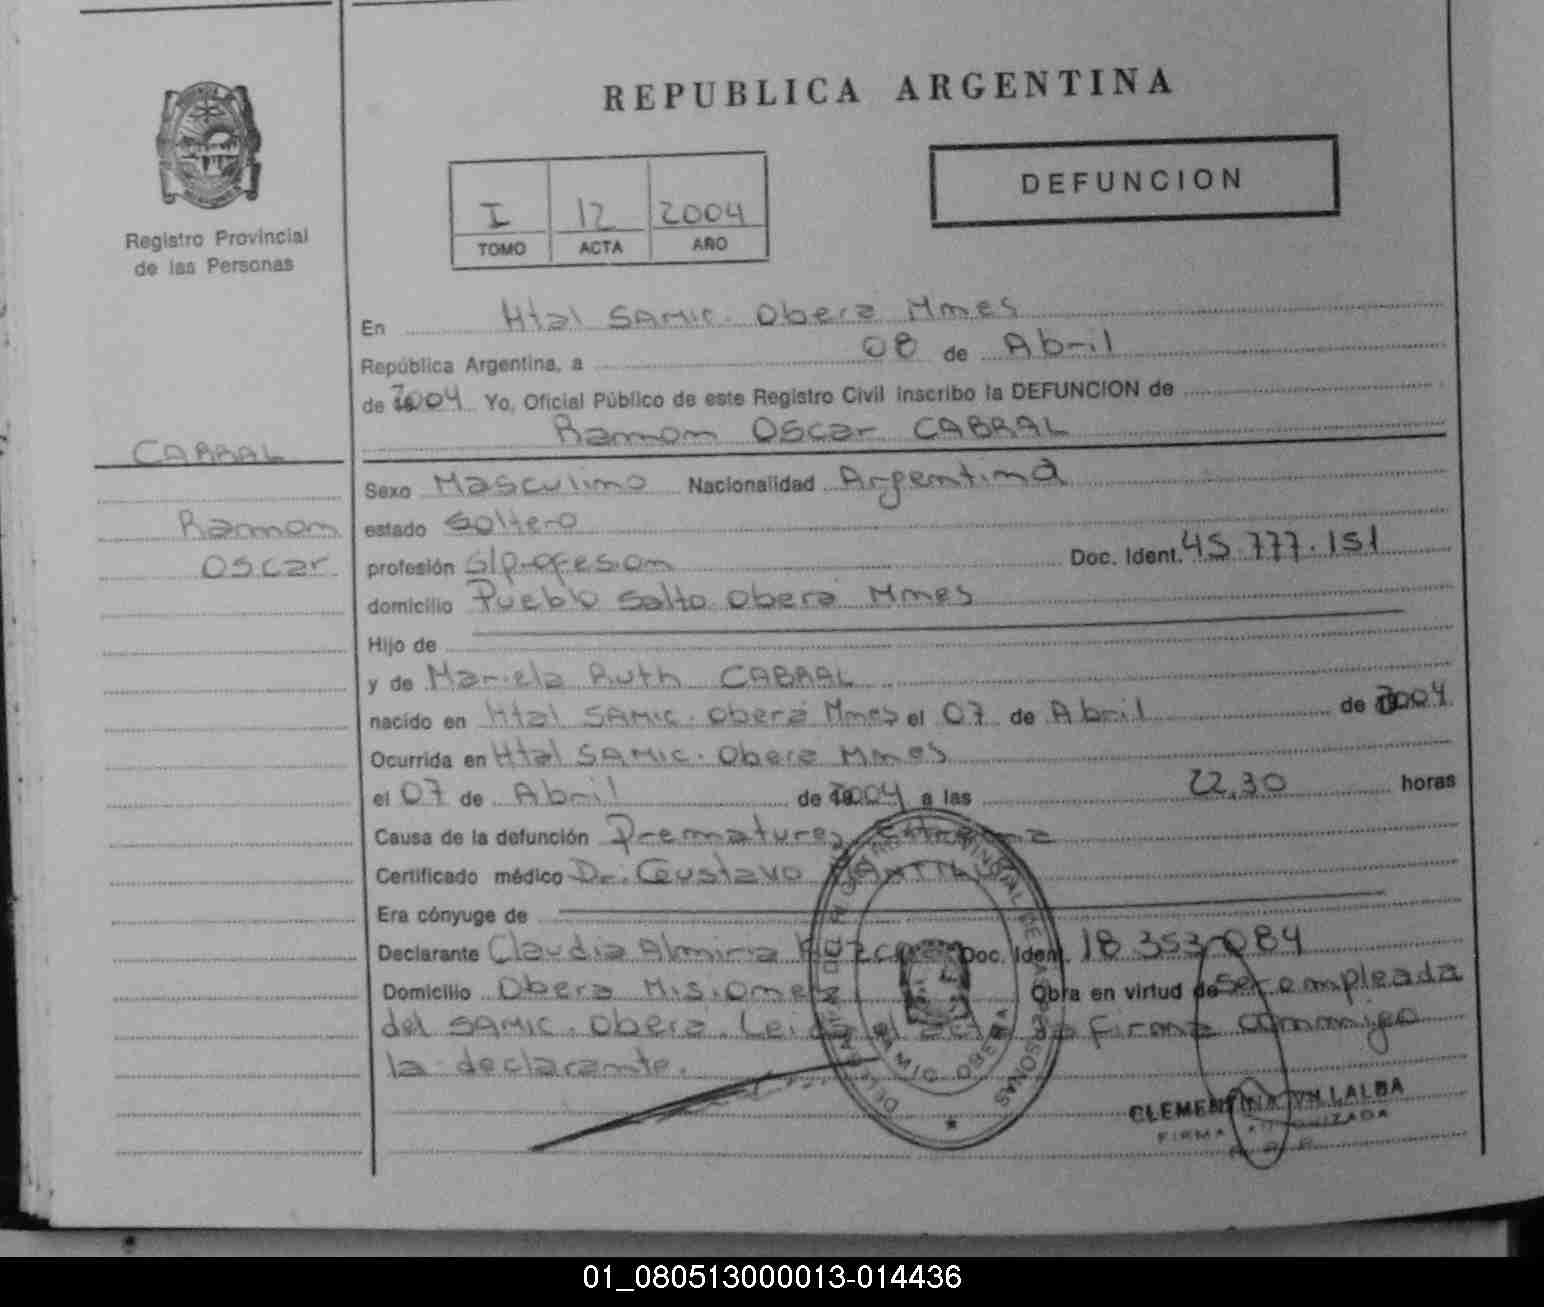 REPUBLICA ARGENTINA
DEFUNCION
Registro Provincial
de las Personas
I 12 2004
TOMO ACTA AÑO
En Htal SAMIC. Oberá Mnes
República Argentina, a 08 de Abril
de 2004 Yo, Oficial Público de este Registro Civil inscribo la DEFUNCION de
Ramon Oscar CABRAL
CABRAL
Ramon
Oscar
Sexo Masculino Nacionalidad Argentina
estado Soltero
profesión S/profesion Doc. Ident. 45.777.151
domicilio Pueblo Salto Oberá Mnes
Hijo de
y de Mariela Ruth CABRAL
nacido en Htal SAMIC. Oberá Mnes el 07 de Abril de 2004
Ocurrida en Htal SAMIC. Oberá Mnes
el 07 de Abril de 2004 a las 22,30 horas
Causa de la defunción Prematurez Extrema
Certificado médico Dr. Gustavo
Era cónyuge de
Declarante Claudia Doc. Ident. 18.353.084
Domicilio Oberá Misiones Obra en virtud de ser empleada
del SAMIC. Oberá. Leida el firma conmigo
la declarante.
DELEGACION DEL REGISTRO PROVINCIAL DE LAS PERSONAS
SAMIC OBERA
CLEMENTINA VILLALBA
FIRMA AUTORIZADA
01_080513000013-014436